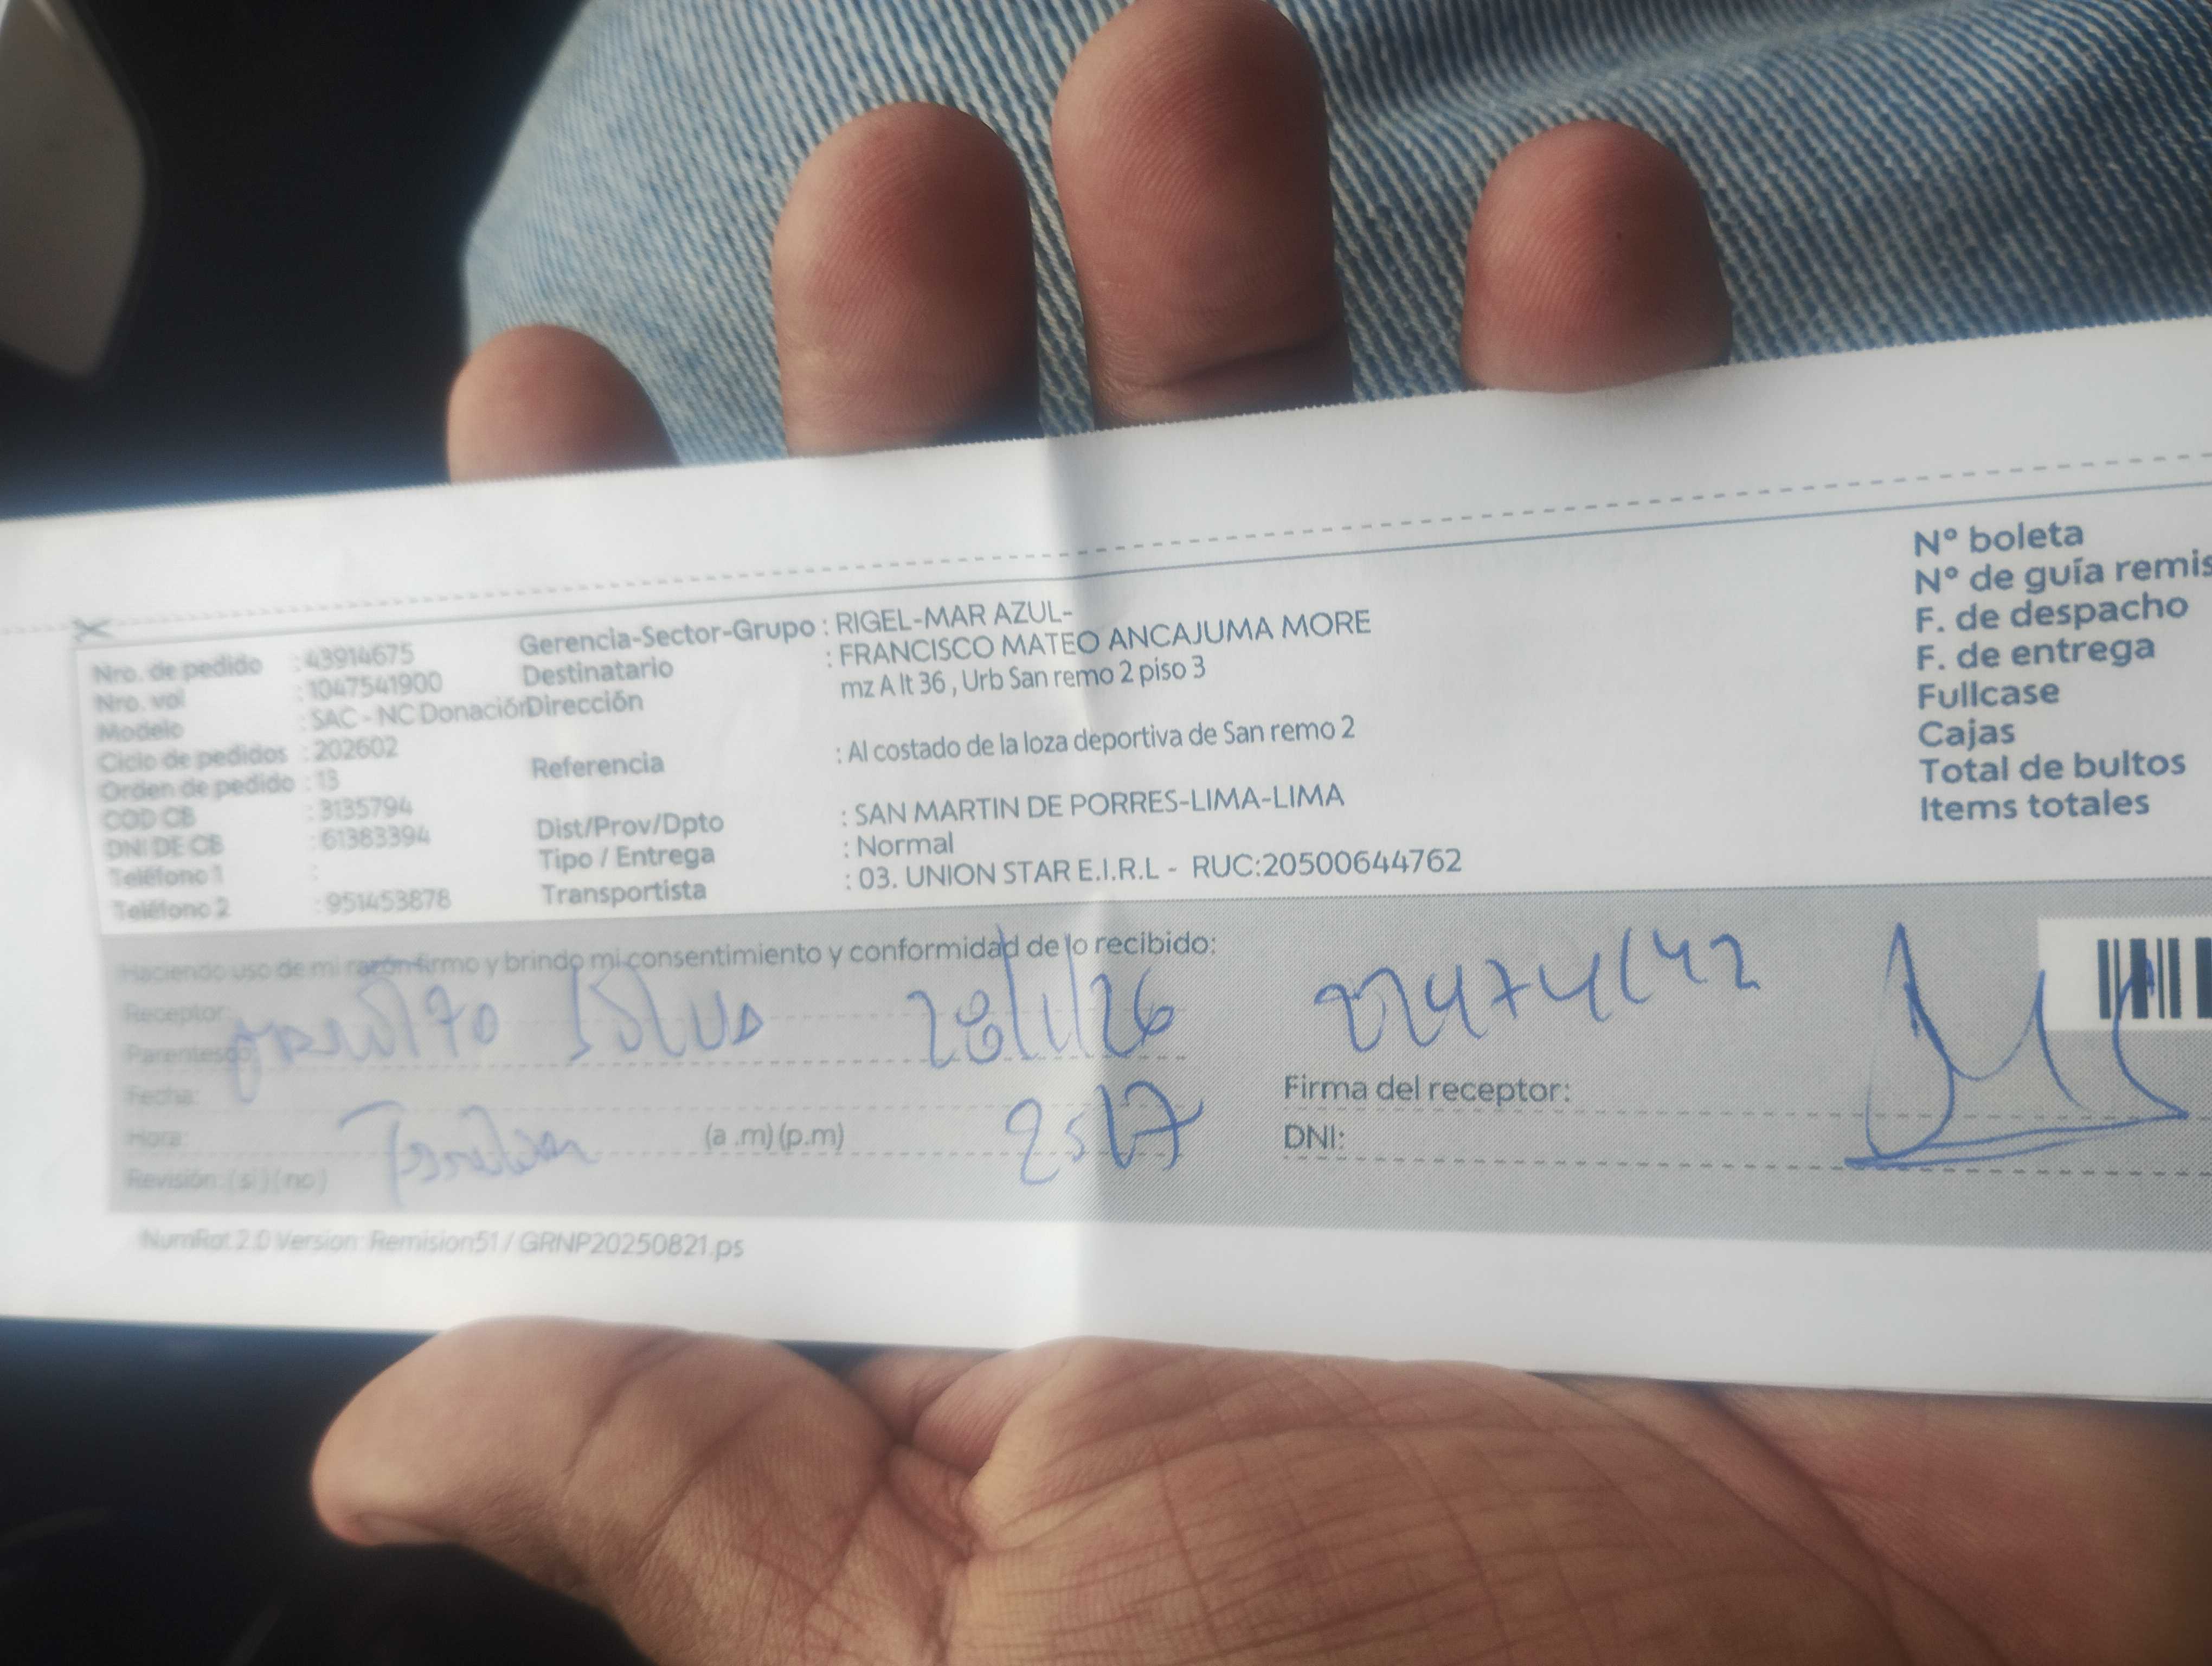 Nro. de pedido : 43914675
Nro. vol : 1047541900
Modelo : SAC - NC Donación
Ciclo de pedidos : 202602
Orden de pedido : 13
COD CB : 3135794
DNI DE CB : 61383394
Teléfono 1 :
Teléfono 2 : 951453878
Gerencia-Sector-Grupo : RIGEL-MAR AZUL-
Destinatario : FRANCISCO MATEO ANCAJUMA MORE
Dirección mz A lt 36 , Urb San remo 2 piso 3
Referencia : Al costado de la loza deportiva de San remo 2
Dist/Prov/Dpto : SAN MARTIN DE PORRES-LIMA-LIMA
Tipo / Entrega : Normal
Transportista : 03. UNION STAR E.I.R.L - RUC:20500644762
N° boleta
N° de guía remis
F. de despacho
F. de entrega
Fullcase
Cajas
Total de bultos
Items totales
Haciendo uso de mi razón firmo y brindo mi consentimiento y conformidad de lo recibido:
Receptor:
28/1/26
Parentesco:
Fecha:
Firma del receptor:
Hora: (a .m) (p.m)
DNI:
Revisión: (si) (no)
NumRot 2.0 Version: Remision51 / GRNP20250821.ps